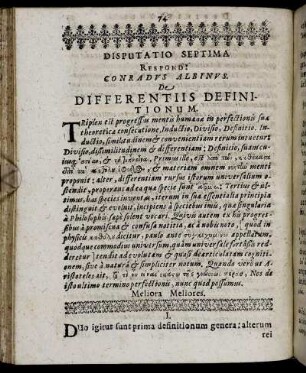 74
DISPUTATIO SEPTIMA
RESPOND:
CONRADVS ALBINVS.
De
DIFFERENTIIS DEFINI-
TIONUM.
TRiplex est progressus mentis humanæ in perfectionis suæ
theoreticæ consecutione, Inductio, Divisio, Definitio. In-
ductio, similitudinem & convenientiam rerum intuetur:
Divisio, dissimilitudinem & differentiam; Definitio,
& materiam omnem menti
proponit; alter, differentiam rursus istorum universalium o-
stendit, properans ad ea quæ specie sunt Tertius & ul-
timus, has species investigat, iterum in sua essentialia principia
distinguit & evolvit, incipiens à speciebus imis, quæ singularia
à Philosophis sæpè solent vocari. Qui vis autem ex his progres-
sibus à promiscua & confusa notitia, ac à nobis nota, quod in
physicis dicitur, paulo ante appellarunt,
quodque commodius universum, quàm universale forsitan redde-
retur; tendit ad volutam & quasi articulatam cogniti-
onem, sive à natura & simpliciter notum. Quando verò ut A-
ristoteles ait, Nos de
isto ultimo termino perfectionis, nunc quid possumus.
Meliora Meliores.
I.
DUo igitur sunt prima definitionum genera; alterum
rei